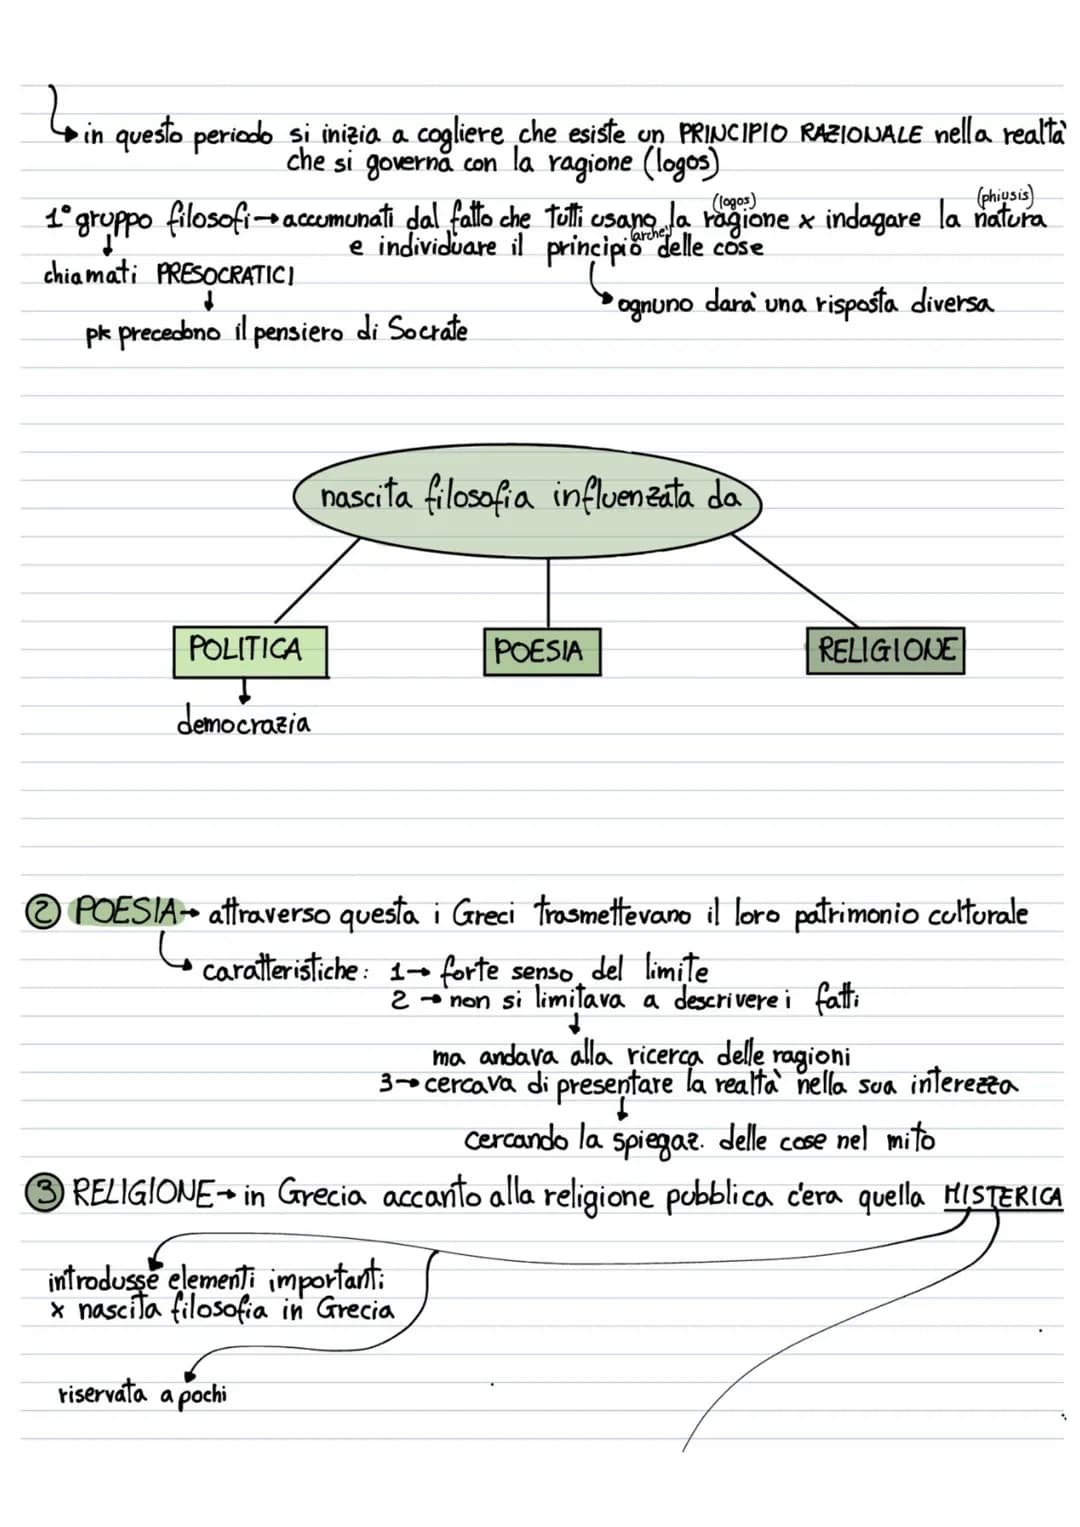 in questo periodo si inizia a cogliere che esiste un PRINCIPIO RAZIONALE nella realtà
che si governa con la ragione (logos)
(logos) (phiusis)
1° gruppo filosofi → accumunati dal fatto che tutti usano la ragione x indagare la natura
e individuare il principio (arche) delle cose
chiamati PRESOCRATICI
ognuno darà una risposta diversa
pk precedono il pensiero di Socrate
nascita filosofia influenzata da
POLITICA POESIA RELIGIONE
democrazia
② POESIA → attraverso questa i Greci trasmettevano il loro patrimonio culturale
caratteristiche: 1 → forte senso del limite
2 → non si limitava a descrivere i fatti
ma andava alla ricerca delle ragioni
3 → cercava di presentare la realtà nella sua interezza
cercando la spiegaz. delle cose nel mito
③ RELIGIONE → in Grecia accanto alla religione pubblica c'era quella MISTERICA
introdusse elementi importanti
x nascita filosofia in Grecia
riservata a pochi